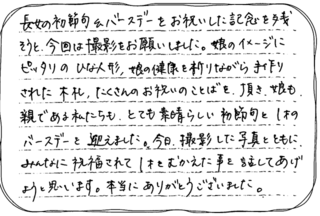 長女の初節句&バースデーをお祝いした記念を残
そうと、今回は撮影をお願いしました。娘のイメージに
ピッタリのひな人形、娘の健康を祈りながら手作り
された木札、たくさんのお祝いのことばを頂き、娘も
親である私たちも、とても素晴らしい初節句と1才の
バースデーを迎えました。今日、撮影した写真とともに
みんなに祝福されて1才をむかえた事を話してあげ
ようと思います。本当にありがとうございました。